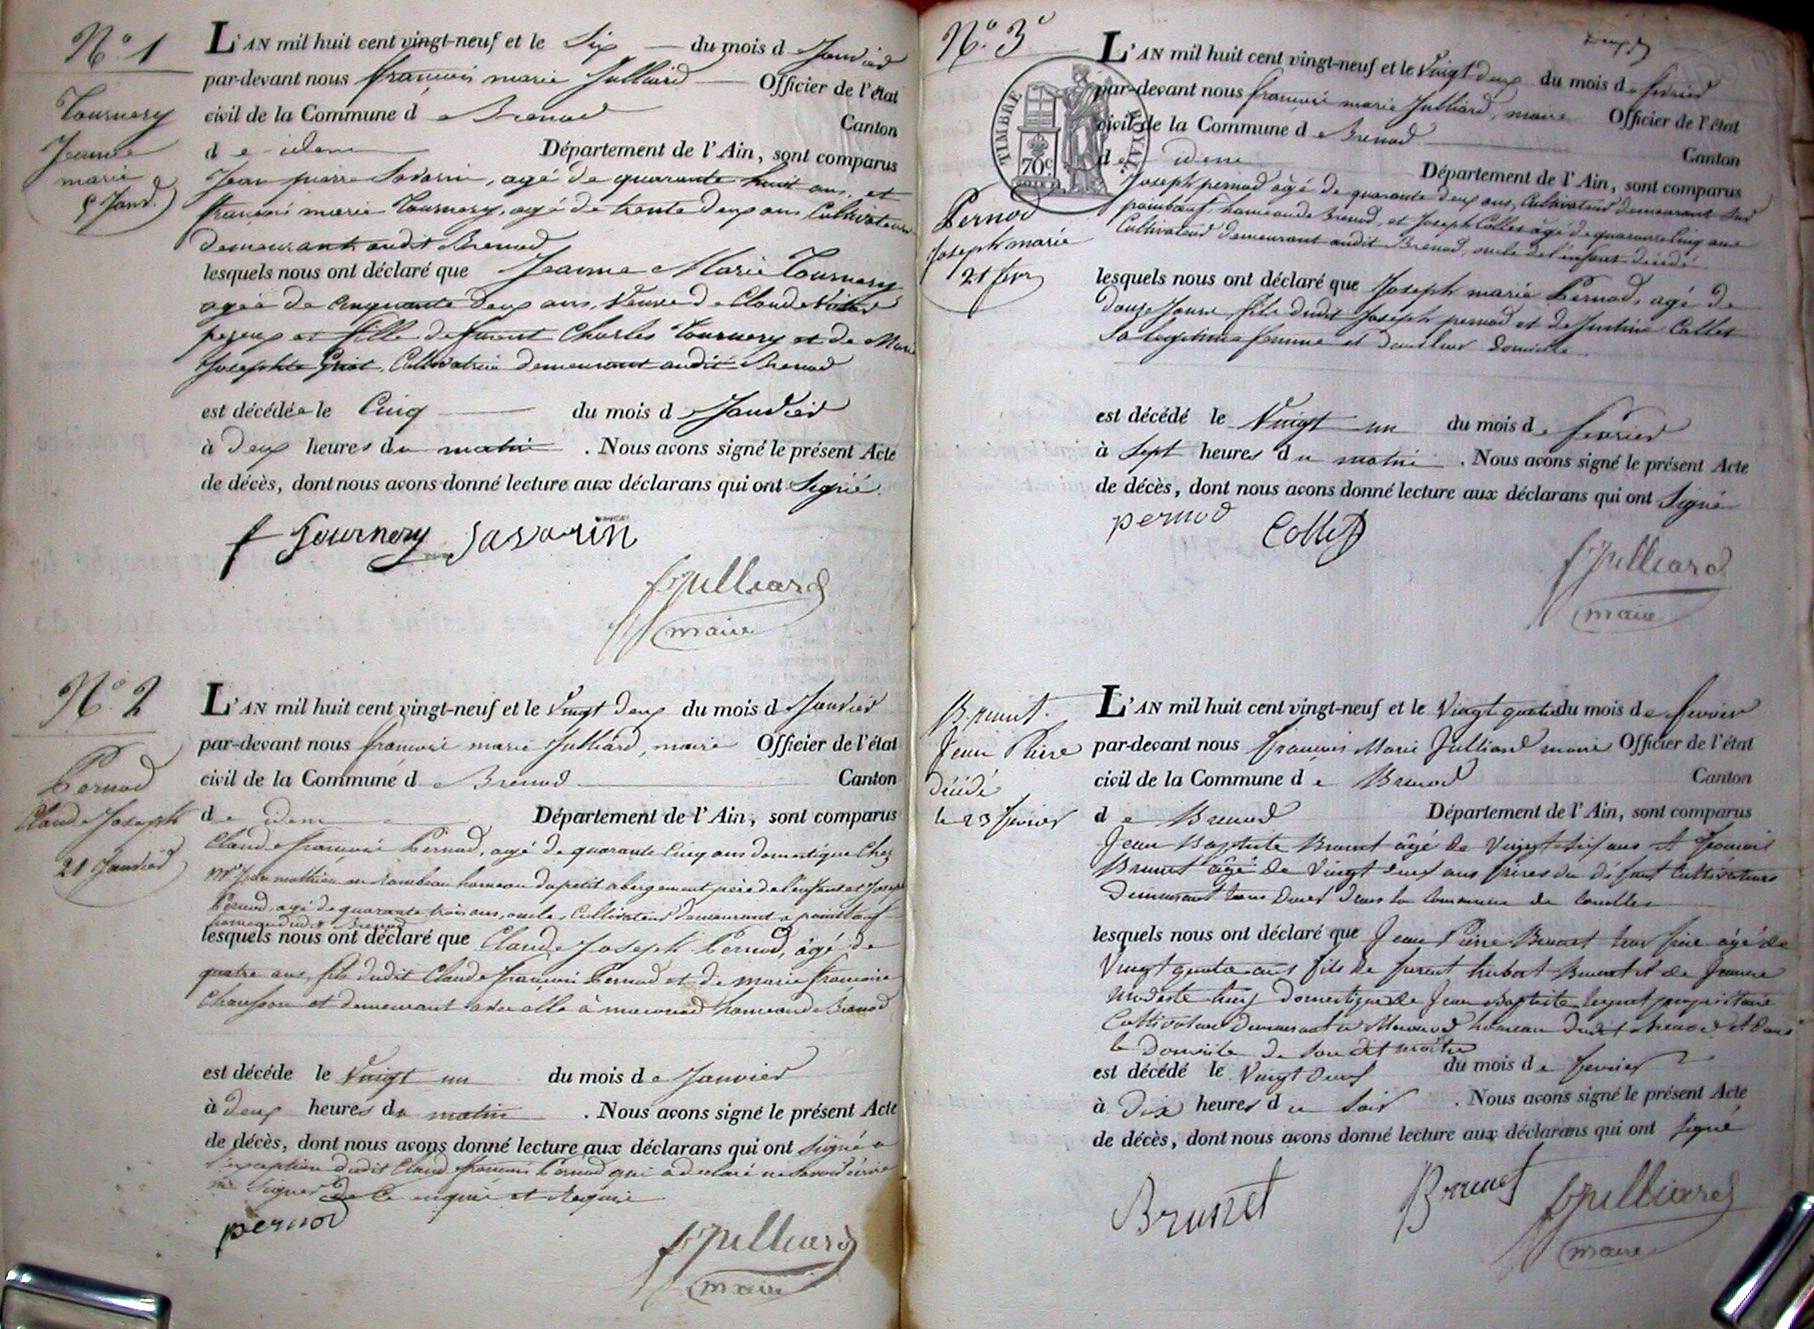 N.o 1
Tournery
Jeanne
marie
5 Janv.
L'AN mil huit cent vingt-neuf et le Six du mois de Janvier
par-devant nous françois marie Julliard Officier de l'état
civil de la Commune de Brenod Canton
de idem Département de l'Ain, sont comparus
Jean pierre Savarin, agé de quarante huit ans, et
françois marie Tournery, agé de trente deux ans Cultivateurs
demeurants audit Brenod
lesquels nous ont déclaré que Jeanne Marie Tournery
agée de cinquante deux ans, Veuve de Claude
et fille de furent Charles Tournery et de Marie
Josephte Griot, Cultivatrice demeurant audit Brenod
est décédée le Cinq du mois de Janvier
à deux heures du matin . Nous avons signé le présent Acte
de décès, dont nous avons donné lecture aux déclarans qui ont Signé.
f Tournery Savarin
fJulliard
maire
N.o 2
Pernod
Claude Joseph
21 Janvier
L'AN mil huit cent vingt-neuf et le Vingt deux du mois de Janvier
par-devant nous françois marie Julliard, maire Officier de l'état
civil de la Commune de Brenod Canton
de idem Département de l'Ain, sont comparus
Claude françois Pernod, agé de quarante Cinq ans domestique Chez
Mr Jean mathieu hameau du petit abergement père de l'enfant et Joseph
Pernod, agé de quarante trois ans, oncle, Cultivateur demeurant a
hameau dudit Brenod
lesquels nous ont déclaré que Claude Joseph Pernod, âgé de
quatre ans, fils dudit Claude françois Pernod et de marie françoise
Chausson et demeurant avec elle à hameau de Brenod
est décédé le Vingt un du mois de Janvier
à deux heures du matin . Nous avons signé le présent Acte
de décès, dont nous avons donné lecture aux déclarans qui ont signé a
l'exception dudit Claude françois Pernod qui a declaré ne Savoir écrire
ni Signer de ce enquis et Requis
pernod
fJulliard
maire
N.o 3
Pernod
Joseph marie
21 fevr
TIMBRE ROYAL
70c
L'AN mil huit cent vingt-neuf et le Vingt deux du mois de fevrier
par-devant nous françois marie Julliard, maire Officier de l'état
civil de la Commune de Brenod Canton
de idem Département de l'Ain, sont comparus
Joseph pernod âgé de quarante deux ans, Cultivateur demeurant
hameau de Brenod, et Joseph Collet âgé de quarante Cinq ans
Cultivateur demeurant audit Brenod, oncle de l'enfant décédé
lesquels nous ont déclaré que Joseph marie Pernod, agé de
douze Jours, fils dudit Joseph pernod et de Justine Collet
Sa legitime femme et dans leur domicile
est décédé le Vingt un du mois de fevrier
à Sept heures du matin . Nous avons signé le présent Acte
de décès, dont nous avons donné lecture aux déclarans qui ont Signé
pernod Collet
fJulliard
maire
Brunet
Jean Pierre
décédé
le 23 fevrier
L'AN mil huit cent vingt-neuf et le Vingt quatre du mois de fevrier
par-devant nous françois Marie Julliard maire Officier de l'état
civil de la Commune de Brenod Canton
de Brenod Département de l'Ain, sont comparus
Jean Baptiste Brunet âgé de Vingt six ans et françois
Brunet âgé de Vingt deux ans frères du défunt Cultivateurs
Demeurant tous Deux Dans la Commune de
lesquels nous ont déclaré que Jean Pierre Brunet leur frère âgé de
Vingt quatre ans fils de furent hubert Brunet et de Jeanne
Modeste domestique de Jean Baptiste propriétaire
Cultivateur Demeurant a hameau dudit Brenod et dans
le Domicile de Son dit maître
est décédé le Vingt trois du mois de fevrier
à Dix heures du Soir . Nous avons signé le présent Acte
de décès, dont nous avons donné lecture aux déclarans qui ont Signé
Brunet Brunet fJulliard
maire